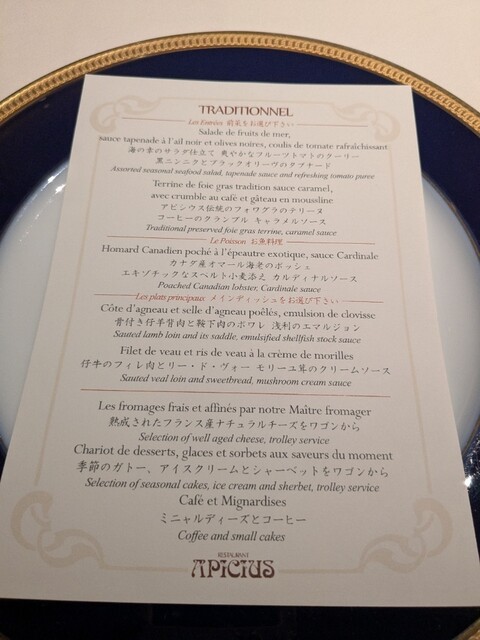 TRADITIONNEL
Les Entrées 前菜をお選び下さい
Salade de fruits de mer,
sauce tapenade à l'ail noir et olives noires, coulis de tomate rafraîchissant
海の幸のサラダ仕立て 爽やかなフルーツトマトのクーリー
黒ニンニクとブラックオリーヴのタプナード
Assorted seasonal seafood salad, tapenade sauce and refreshing tomato puree
Terrine de foie gras tradition sauce caramel,
avec crumble au café et gâteau en moussline
アピシウス伝統のフォワグラのテリーヌ
コーヒーのクランブル キャラメルソース
Traditional preserved foie gras terrine, caramel sauce
Le Poisson お魚料理
Homard Canadien poché à l'épeautre exotique, sauce Cardinale
カナダ産オマール海老のポッシェ
エキゾチックなスペルト小麦添え カルディナルソース
Poached Canadian lobster, Cardinale sauce
Les plats principaux メインディッシュをお選び下さい
Côte d'agneau et selle d'agneau poêlés, emulsion de clovisse
骨付き仔羊背肉と鞍下肉のポワレ 浅利のエマルジョン
Sauted lamb loin and its saddle, emulsified shellfish stock sauce
Filet de veau et ris de veau à la crème de morilles
仔牛のフィレ肉とリー・ド・ヴォー モリーユ茸のクリームソース
Sauted veal loin and sweetbread, mushroom cream sauce
Les fromages frais et affinés par notre Maître fromager
熟成されたフランス産ナチュラルチーズをワゴンから
Selection of well aged cheese, trolley service
Chariot de desserts, glaces et sorbets aux saveurs du moment
季節のガトー、アイスクリームとシャーベットをワゴンから
Selection of seasonal cakes, ice cream and sherbet, trolley service
Café et Mignardises
ミニャルディーズとコーヒー
Coffee and small cakes
RESTAURANT
APICIUS